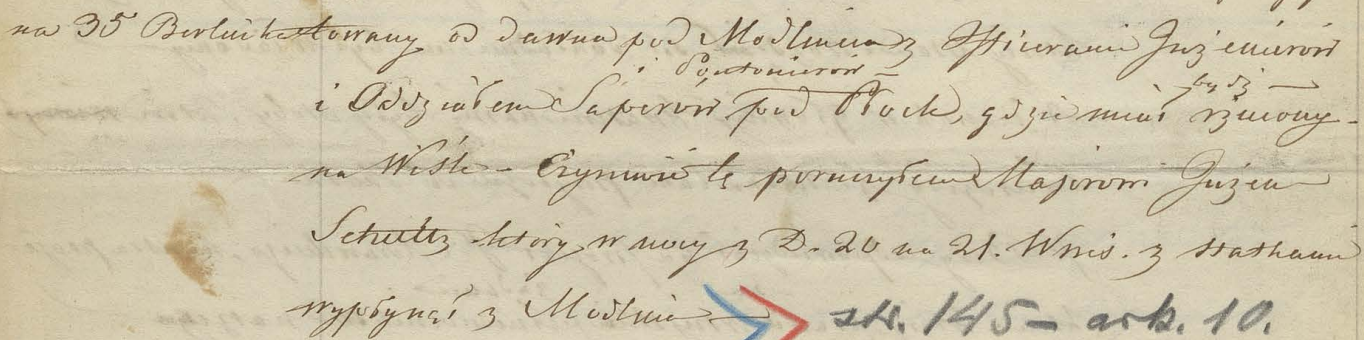 na 35 Berlinkotowany od dawna pod Modlinem z Officerami Inżenierów
i Pontonierów
i Oddziałem Saperów pod Płock, gdzie miał bydź rzucony
na Wiśle – Czynność tę poruczyłem Majorowi Inżen
Schultz który w nocy z D. 20 na 21. Wrześ. z statkami
wypłynął z Modlina
str. 145 – ark. 10.